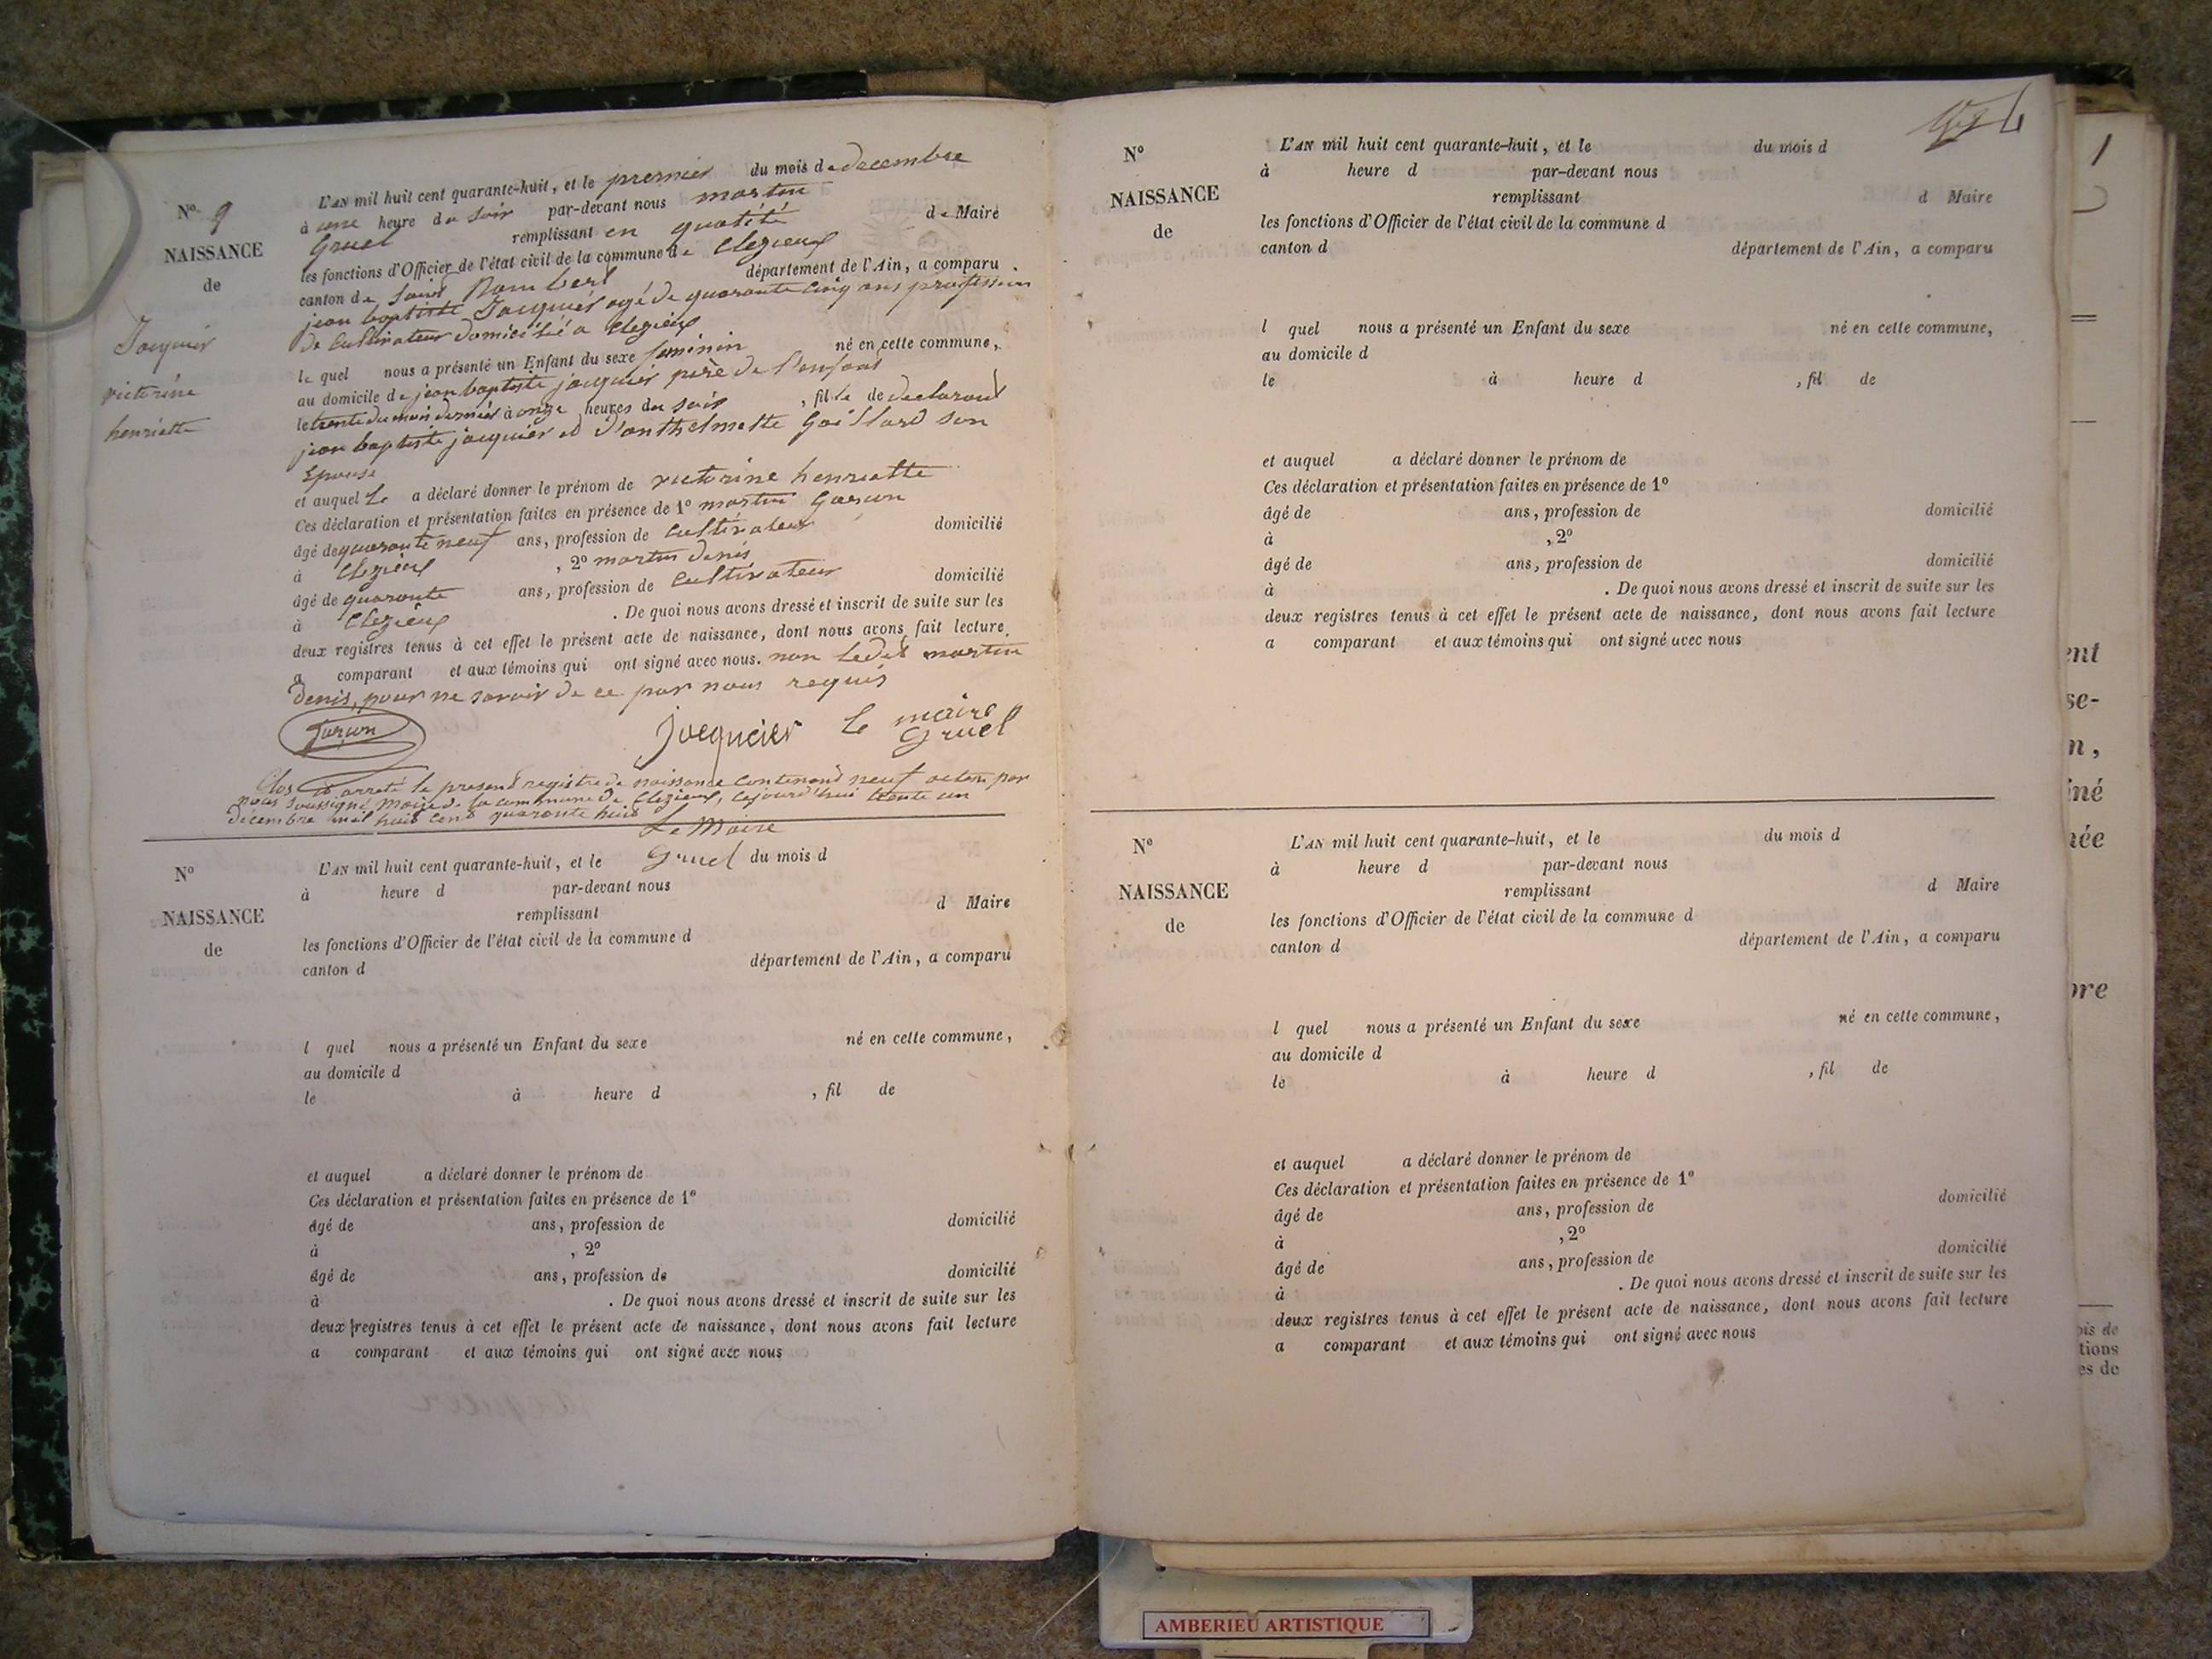 L'AN mil huit cent quarante-huit, et le premier du mois de decembre
N° 9
à une heure du soir par-devant nous martin
Gruel remplissant en qualité de Maire
NAISSANCE
les fonctions d'Officier de l'état civil de la commune de Clezieux
de
canton de Saint Rambert département de l'Ain, a comparu
jean baptiste Jacquier agé de quarante cinq ans profession
de Cultivateur domicilié a Clezieux
Jacquier
victorine
henriette
le quel nous a présenté un Enfant du sexe feminin né en cette commune,
au domicile de jean baptiste jacquier père de l'enfant
le trente du mois dernier à onze heures du soir, fille de declarant
jean baptiste jacquier et d'anthelmette Gaillard son
Epouse
et auquel Le a déclaré donner le prénom de victorine henriette
Ces déclaration et présentation faites en présence de 1° martin Garçon
âgé de quarante neuf ans, profession de Cultivateur domicilié
à Clezieux, 2° martin denis
âgé de quarante ans, profession de Cultivateur domicilié
à Clezieux. De quoi nous avons dressé et inscrit de suite sur les
deux registres tenus à cet effet le présent acte de naissance, dont nous avons fait lecture
a comparant et aux témoins qui ont signé avec nous. non ledit martin
denis, pour ne savoir de ce par nous requis
Garçon jacquier Le maire
Gruel
Clos et arreté le present registre de naissance contenant neuf actes par
nous soussigné Maire de la commune de Clezieux, cejourd'hui trente un
decembre mil huit cent quarante huit
Le Maire
Gruel
N°
L'AN mil huit cent quarante-huit, et le du mois d
à heure d par-devant nous
NAISSANCE
remplissant d Maire
de
les fonctions d'Officier de l'état civil de la commune d
canton d département de l'Ain, a comparu
l quel nous a présenté un Enfant du sexe né en cette commune,
au domicile d
le à heure d , fil de
et auquel a déclaré donner le prénom de
Ces déclaration et présentation faites en présence de 1°
âgé de ans, profession de domicilié
à , 2°
âgé de ans, profession de domicilié
à . De quoi nous avons dressé et inscrit de suite sur les
deux registres tenus à cet effet le présent acte de naissance, dont nous avons fait lecture
a comparant et aux témoins qui ont signé avec nous
N°
L'AN mil huit cent quarante-huit, et le du mois d
à heure d par-devant nous
NAISSANCE
remplissant d Maire
de
les fonctions d'Officier de l'état civil de la commune d
canton d département de l'Ain, a comparu
l quel nous a présenté un Enfant du sexe né en cette commune,
au domicile d
le à heure d , fil de
et auquel a déclaré donner le prénom de
Ces déclaration et présentation faites en présence de 1°
âgé de ans, profession de domicilié
à , 2°
âgé de ans, profession de domicilié
à . De quoi nous avons dressé et inscrit de suite sur les
deux registres tenus à cet effet le présent acte de naissance, dont nous avons fait lecture
a comparant et aux témoins qui ont signé avec nous
N°
L'AN mil huit cent quarante-huit, et le du mois d
à heure d par-devant nous
NAISSANCE
remplissant d Maire
de
les fonctions d'Officier de l'état civil de la commune d
canton d département de l'Ain, a comparu
l quel nous a présenté un Enfant du sexe né en cette commune,
au domicile d
le à heure d , fil de
et auquel a déclaré donner le prénom de
Ces déclaration et présentation faites en présence de 1°
âgé de ans, profession de domicilié
à , 2°
âgé de ans, profession de domicilié
à . De quoi nous avons dressé et inscrit de suite sur les
deux registres tenus à cet effet le présent acte de naissance, dont nous avons fait lecture
a comparant et aux témoins qui ont signé avec nous
AMBERIEU ARTISTIQUE